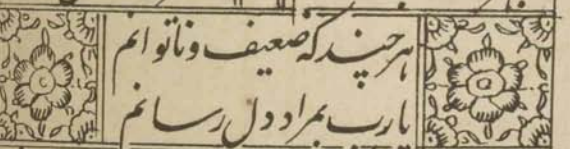 هر چند که ضعیف و ناتوانم
یارب بمراد دل رسانم